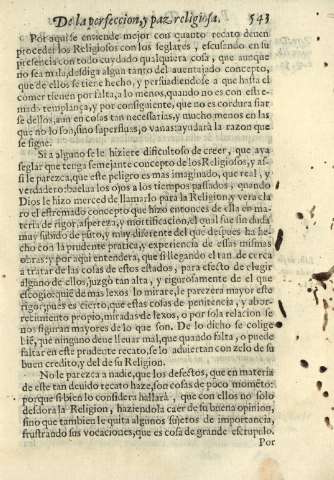 De la perfeccion, y paz religiosa. 543
Por aqui se entiende mejor con quanto recato deuen
proceder los Religiosos con los seglares, escusando en su
presencia con todo cuydado qualquiera cosa, que aunque
no sea mala, desdiga algun tanto del auentajado concepto,
que de ellos se tiene hecho, y persuadiendose a que hasta el
comer tienen por falta, a lo menos, quando no es con este-
mado templança, y por consiguiente, que no es cordura fiar
se dellos, aun en cosas tan necessarias, y mucho menos en las
que no lo son, sino superfluas, o vanas: ayudarà la razon que
se sigue.
Si a alguno se le hiziere dificultoso de creer, que aya
seglar que tenga semejante concepto de los Religiosos, y as-
si le parezca, que este peligro es mas imaginado, que real, y
verdadero: buelua los ojos a los tiempos passados, quando
Dios le hizo merced de llamarlo para la Religion, y vera cla
ro el estremado concepto que hizo entonces de ella en ma-
teria de rigor, aspereza, y mortificacion, el qual fue sin duda
muy subido de puto, y muy diferente del que despues ha he-
cho con la prudente pratica, y experiencia de essas mismas
obras: y por aqui entenderà, que si llegando el tan de cerca
a tratar de las cosas de estos estados, para efecto de elegir
alguno de ellos, juzgò tan alta, y rigurosamente de el que
escogio: què de mas lexos lo mirare, le parezera mayor este
rigor: pues es cierto, que estas cosas de penitencia, y abor-
recimiento propio, miradas de lexos, o por sola relacion se
nos figuran mayores de lo que son. De lo dicho se colige
biē, que ninguno deue lleuar mal, que quando falta, o puede
faltar en este prudente recato, se lo aduiertan con zelo de su
buen credito, y del de su Religion.
No le parezca a nadie, que los defectos, que en materia
de este tan deuido recato haze, son cosas de poco momēto:
porque si bien lo considera hallarà, que con ellos no solo
desdora la Religion, haziendola caer de su buena opinion,
sino que tambien le quita algunos sujetos de importancia,
frustrando sus vocaciones, que es cosa de grande escrupulo.
Por